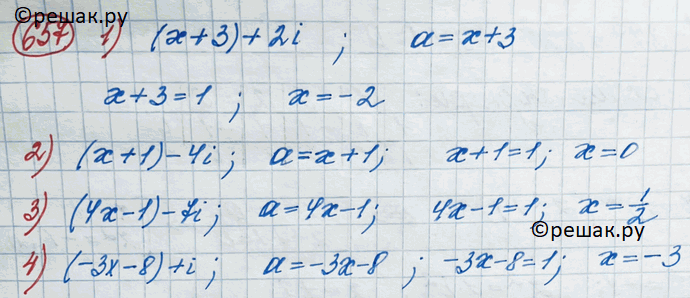 ©решак.ру
657 1) (x+3)+2i ; a=x+3
x+3=1 ; x=-2
2) (x+1)-4i ; a=x+1; x+1=1; x=0
3) (4x-1)-7i; a=4x-1; 4x-1=1; x=1/2
©решак.ру
4) (-3x-8)+i; a=-3x-8 ; -3x-8=1; x=-3